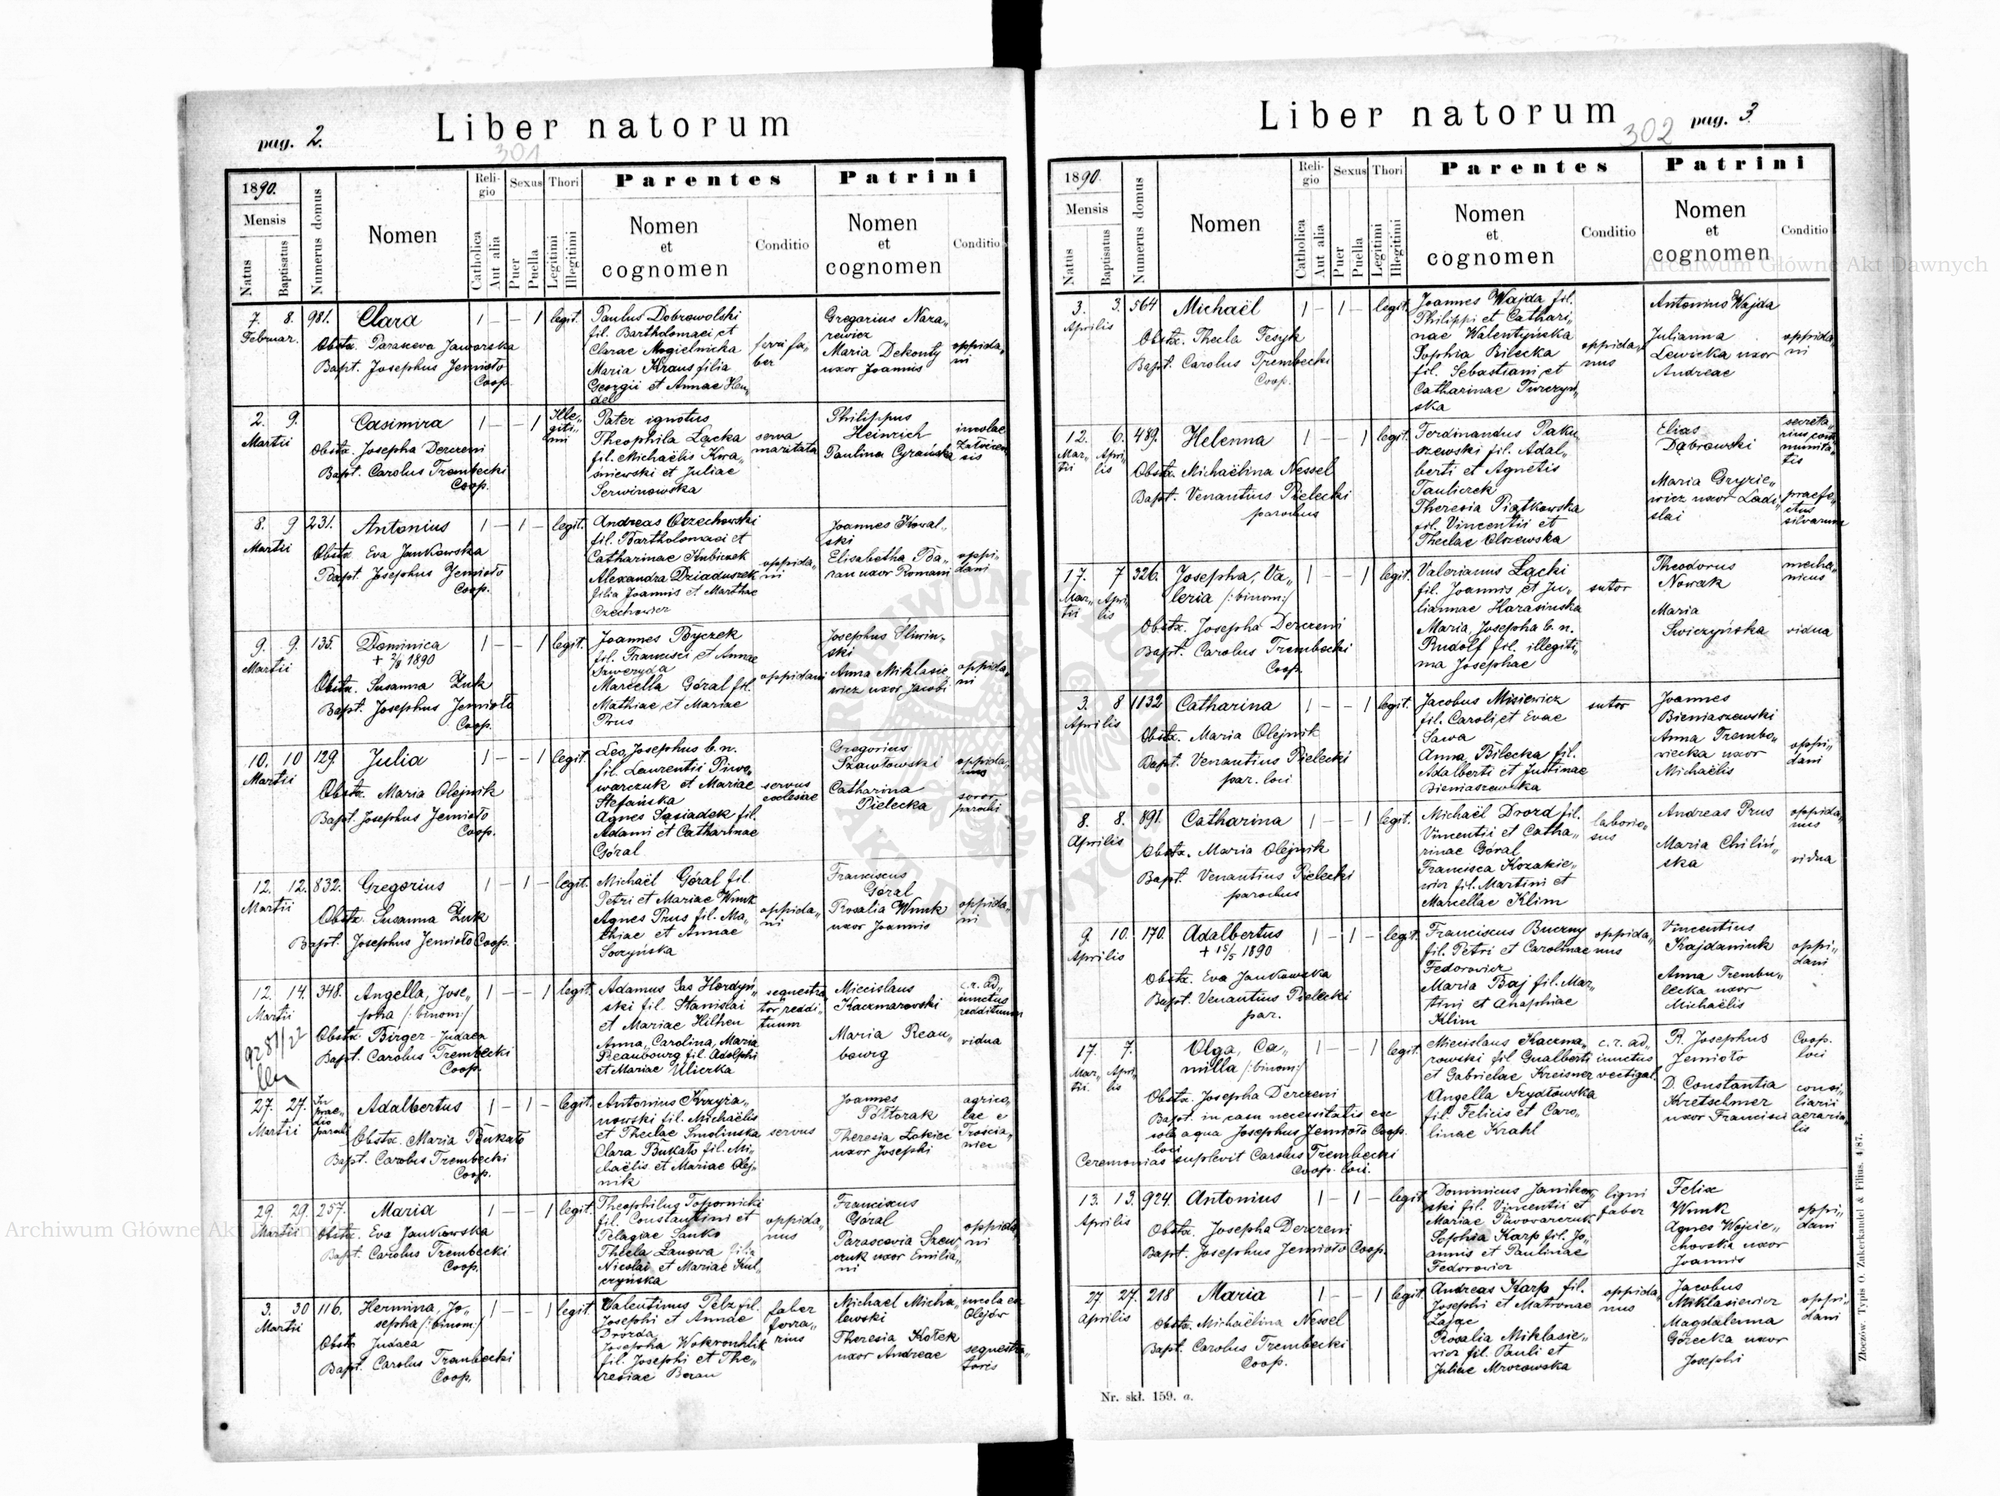 pag. 2.
Liber natorum
301
1890.
Mensis
Natus
Baptisatus
Numerus domus
Nomen
Religio
Catholica
Aut alia
Sexus
Puer
Puella
Thori
Legitimi
Illegitimi
Parentes
Nomen
et
cognomen
Conditio
Patrini
Nomen
et
cognomen
Conditio
7. 8. 981. Clara 1 — — 1 legit.
Februar.
Obstx. Parasceva Jaworska
Bapt. Josephus Jemioło
Coop.
Paulus Dobrowolski
fil. Bartholomaei et
Clarae Mogielnicka
Maria Kraus filia
Georgii et Annae Hen„
del
ferri fa„
ber
Gregorius Nara„
rewicz
Maria Dekonty
uxor Joannis
oppida„
ni
2. 9. Casimira 1 — — 1 Ille„
giti„
mi
Martii
Obstx. Josepha Derczeni
Bapt. Carolus Trembecki
Coop.
Pater ignotus
Theophila Łacka
fil. Michaëlis Kwa„
śniewski et Juliae
Serwinowska
serva
maritata
Philippus
Heinrich
Paulina
incolae
8. 9 231. Antonius 1 — 1 — legit.
Martii
Obstx. Eva Jankowska
Bapt. Josephus Jemioło
Coop.
Andreas Orzechowski
fil. Bartholomaei et
Catharinae Kubiczek
Alexandra Dziaduszek
filia Joannis et Marthae
Czechowicz
oppida„
ni
Joannes Kowal„
ski
Elisabetha Ba„
ran uxor Romani
oppi„
dani
9. 9. 135. Dominica 1 — — 1 legit.
Martii
+ 2/9 1890
Obstx. Susanna Żuk
Bapt. Josephus Jemioło
Coop.
Joannes Byczek
fil. Francisci et Annae
Marcella Góral fil.
Mathiae et Mariae
Prus
oppidani
Josephus Śliwin„
ski
Anna Miklasie„
wicz uxor Jacobi
oppida„
ni
10. 10 129. Julia 1 — — 1 legit.
Martii
Obstx. Maria Olejnik
Bapt. Josephus Jemioło
Coop.
Leo, Josephus b. n.
fil. Laurentii Piwo„
warczuk et Mariae
Stefańska
Agnes Sąsiadek fil.
Adami et Catharinae
Góral
servus
ecclesiae
Gregorius
Szawłowski
Catharina
Pielecka
oppida„
nus
soror
parochi
12. 12. 832. Gregorius 1 — 1 — legit.
Martii
Obstx. Susanna Żuk
Bapt. Josephus Jemioło Coop.
Michaël Góral fil.
Petri et Mariae Wnuk
Agnes Prus fil. Ma„
thiae et Annae
Soczyńska
oppida„
ni
Franciscus
Góral
Rosalia Wnuk
uxor Joannis
oppida„
ni
12. 14. 348. Angella, Jose„ 1 — — 1 legit.
Martii
pha /:binom:/
Obstx. Birger Judaea
Bapt. Carolus Trembecki
Coop.
Adamus Las Hordyń„
ski fil. Stanislai
et Mariae Hilhen
Anna, Carolina, Maria
Beaubourg fil. Adolphi
et Mariae Ulicrka
sequestra
tor reddi„
tuum
Miecislaus
Kaczmarowski
Maria Beau„
bourg
c. r. ad„
iunctus
reddituum
vidua
27. 27. In
prae„
dio
parochi
Adalbertus 1 — 1 — legit.
Martii
Obstx. Maria Bukato
Bapt. Carolus Trembecki
Coop.
Antonius Krzyża„
nowski fil. Michaëlis
et Theclae Smolinska
Clara Bukato fil. Mi„
chaëlis et Mariae Olej„
nik
servus
Joannes
Półtorak
Theresia Łokiec
uxor Josephi
agrico„
lae e
Trościa„
niec
29. 29. 257. Maria 1 — — 1 legit.
Martii
Obstx. Eva Jankowska
Bapt. Carolus Trembecki
Coop.
Theophilus Topornicki
fil. Constantini et
Pelagiae Sanko
Thecla Łangwa filia
Nicolai et Mariae Kul„
czyńska
oppida„
nus
Franciscus
Góral
Parascevia Szew„
czuk uxor Emilia„
ni
oppida„
ni
3. 30 116. Hermina, Jo„ 1 — — 1 legit.
Martii
sepha /:binom:/
Obstx Judaea
Bapt. Carolus Trembecki
Coop.
Valentinus Pelz fil.
Josephi et Annae
Drozda
Josepha Wokrouhlik
fil. Josephi et The„
resiae Beran
faber
ferra„
rius
Michael Micha„
lewski
Theresia Kołek
uxor Andreae
incola ex
Olejów
sequestra„
toris
Liber natorum
302
pag. 3.
1890.
Mensis
Natus
Baptisatus
Numerus domus
Nomen
Religio
Catholica
Aut alia
Sexus
Puer
Puella
Thori
Legitimi
Illegitimi
Parentes
Nomen
et
cognomen
Conditio
Patrini
Nomen
et
cognomen
Conditio
3. 3. 564 Michaël 1 — 1 — legit.
Aprilis
Obstx. Thecla Fesyk
Bapt. Carolus Trembecki
Coop.
Joannes Wajda fil.
Philippi et Cathari„
nae Walentyńska
Sophia Bilecka
fil. Sebastiani et
Catharinae Turczyń„
ska
oppida„
nus
Antonius Wajda
Julianna
Lewicka uxor
Andreae
oppida
ni
12. 6. 489. Helenna 1 — — 1 legit.
Mar„
tii
Apri„
lis
Obstx. Michaëlina Nessel
Bapt. Venantius Pielecki
parochus
Ferdinandus Paku„
szewski fil. Adal„
berti et Agnetis
Tauliczek
Theresia Piątkowska
fil. Vincentii et
Theclae Olszewska
Elias
Dąbrowski
Maria Gryzie„
wicz uxor Ladi„
slai
secreta„
rius com„
munita„
tis
praefe„
ctus
silvarum
17. 7 326. Josepha, Va„ 1 — — 1 legit.
Mar„
tii
Apri„
lis
leria /:binom:/
Obstx. Josepha Derczeni
Bapt. Carolus Trembecki
Coop.
Valerianus Łącki
fil. Joannis et Ju„
liannae Harasinska
Maria, Josepha b. n.
Rudolf fil. illegiti„
ma Josephae
sutor
Theodorus
Nowak
Maria
Swiczyńska
mecha„
nicus
vidua
3. 8 1132 Catharina 1 — — 1 legit.
Aprilis
Obstx. Maria Olejnik
Bapt. Venantius Pielecki
par. loci
Jacobus Misiewicz
fil. Caroli et Evae
Sawa
Anna Bilecka fil.
Adalberti et Justinae
Bieniaszewska
sutor
Joannes
Bieniaszewski
Anna Trembo„
wiecka uxor
Michaëlis
oppi„
dani
8. 8. 891. Catharina 1 — — 1 legit.
Aprilis
Obstx. Maria Olejnik
Bapt. Venantius Pielecki
parochus
Michaël Drozd fil.
Vincentii et Catha„
rinae Góral
Francisca Kozakie„
wicz fil. Martini et
Marcellae Klim
laborio„
sus
Andreas Prus
Maria Chiliń„
ska
oppida„
nus
vidua
9. 10. 170. Adalbertus 1 — 1 — legit.
Aprilis
+ 15/5 1890
Obstx. Eva Jankowska
Bapt. Venantius Pielecki
par.
Franciscus Buczny
fil. Petri et Carolinae
Fedorowicz
Maria Baj fil. Mar„
tini et Anaphiae
Klim
oppida„
nus
Vincentius
Krajdaniuk
Anna Trembu„
lecka uxor
Michaëlis
oppi„
dani
17. 7. Olga, Ca„ 1 — — 1 legit.
Mar„
tii.
Apri„
lis
milla /:binom:/
Obstx. Josepha Derczeni
Bapt. in casu necessitatis ex
sola aqua Josephus Jemioło Coop.
loci
Ceremonias suplevit Carolus Trembecki
Coop. loci.
Miecislaus Kaczma„
rowski fil Gualberti
et Gabrielae Kreisner
Angella Szydłowska
fil. Felicis et Caro„
linae Krahl
c. r. ad„
iunctus
vectigal.
R. Josephus
Jemioło
D. Constantia
Kretschmer
uxor Francisci
Coop.
loci
consi„
liarii
aeraria„
lis
13. 13. 924. Antonius 1 — 1 — legit
Aprilis
Obstx. Josepha Derczeni
Bapt. Josephus Jemioło Coop.
Dominicus Janikow„
ski fil. Vincentii et
Mariae Piwowarczuk
Sophia Karp fil. Jo„
annis et Paulinae
Fedorowicz
ligni
faber
Felix
Wnuk
Agnes Wojcie„
chowska uxor
Joannis
oppi„
dani
27 27. 218 Maria 1 — — 1 legit.
Aprilis
Obstx. Michaëlina Nessel
Bapt. Carolus Trembecki
Coop.
Andreas Karp fil.
Josephi et Matronae
Zając
Rosalia Miklasie„
wicz fil. Pauli et
Juliae Mrozowska
oppida„
nus
Jacobus
Miklasiewicz
Magdalenna
Górecka uxor
Josephi
oppi„
dani
Nr. skł. 159. a.
Złoczów. Typis O. Zukerkandel & Filius. 4/87.
Archiwum Główne Akt Dawnych
Archiwum Główne Akt Dawnych